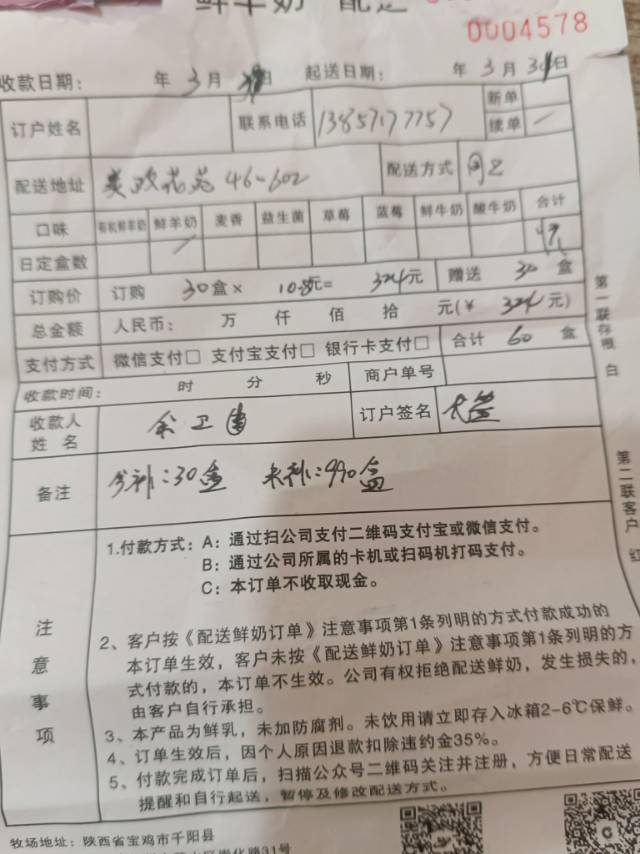 鲜羊奶 配送
0004578
收款日期： 年 3月 日 起送日期： 年 3月 31日
订户姓名 联系电话 13857177757 新单
续单
配送地址 美政花苑 46-602 配送方式
口味 有机鲜羊奶 鲜羊奶 麦香 益生菌 草莓 蓝莓 鲜牛奶 酸牛奶 合计
日定盒数
订购价 订购 30盒× 10.8元= 324元 赠送 30 盒
总金额 人民币： 万 仟 佰 拾 元(¥ 324 元)
支付方式 微信支付□ 支付宝支付□ 银行卡支付□ 合计 60 盒
收款时间： 时 分 秒 商户单号
收款人
姓 名 余卫 订户签名
备注 今补：30盒 未补：990盒
第一联存根 白
第二联客户 红
注意事项
1.付款方式：A：通过扫公司支付二维码支付宝或微信支付。
B：通过公司所属的卡机或扫码机打码支付。
C：本订单不收取现金。
2、客户按《配送鲜奶订单》注意事项第1条列明的方式付款成功的
本订单生效，客户未按《配送鲜奶订单》注意事项第1条列明的方
式付款的，本订单不生效。公司有权拒绝配送鲜奶，发生损失的，
由客户自行承担。
3、本产品为鲜乳，未加防腐剂。未饮用请立即存入冰箱2-6℃保鲜。
4、订单生效后，因个人原因退款扣除违约金35%。
5、付款完成订单后，扫描公众号二维码关注并注册，方便日常配送
提醒和自行起送，暂停及修改配送方式。
牧场地址：陕西省宝鸡市千阳县
崇化路31号